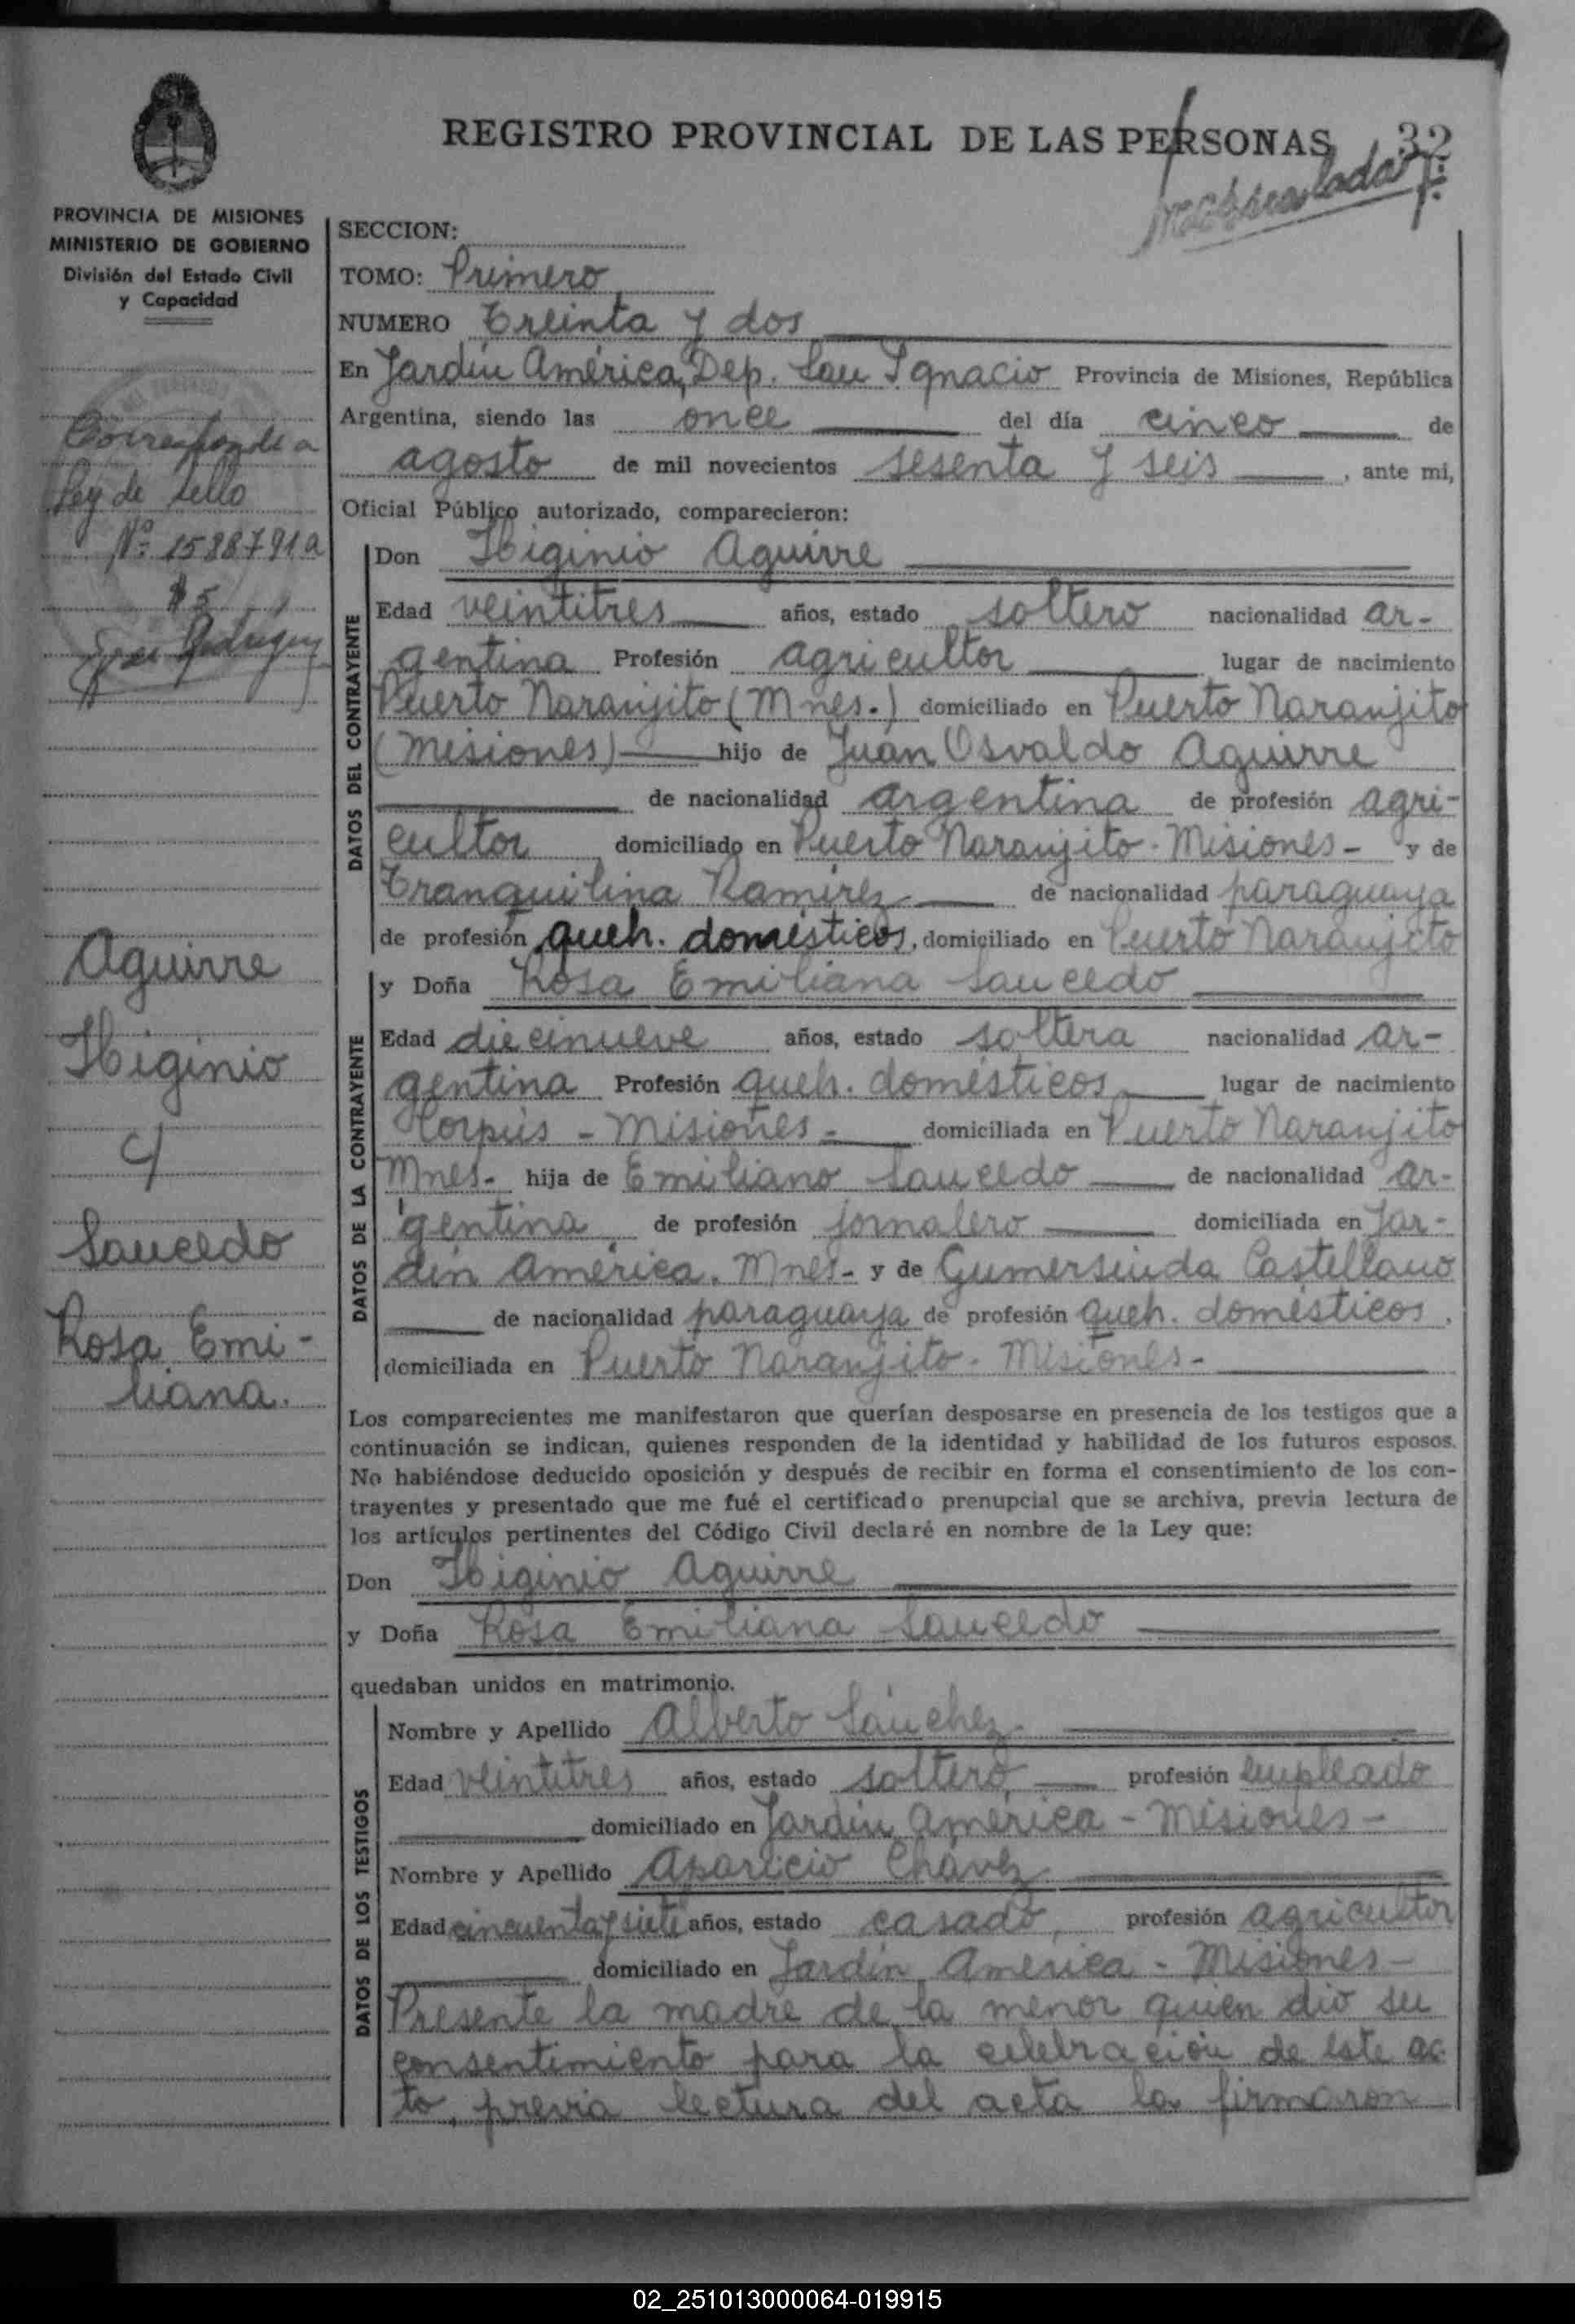 REGISTRO PROVINCIAL DE LAS PERSONAS 32
PROVINCIA DE MISIONES
MINISTERIO DE GOBIERNO
División del Estado Civil
y Capacidad
Corresponde a
Ley de sello
Nº 1588791a
$5
Aguirre
Higinio
c/
Saucedo
Rosa Emi-
liana.
SECCION:
TOMO: Primero
NUMERO Treinta y dos
En Jardín América, Dep. San Ignacio Provincia de Misiones, República
Argentina, siendo las once del día cinco de
agosto de mil novecientos sesenta y seis, ante mi,
Oficial Público autorizado, comparecieron:
DATOS DEL CONTRAYENTE
Don Higinio Aguirre
Edad veintitres años, estado soltero nacionalidad ar-
gentina Profesión agricultor lugar de nacimiento
Puerto Naranjito (Mnes.) domiciliado en Puerto Naranjito
(Misiones) hijo de Juan Osvaldo Aguirre
de nacionalidad argentina de profesión agri-
cultor domiciliado en Puerto Naranjito - Misiones - y de
Tranquilina Ramírez de nacionalidad paraguaya
de profesión queh. domésticos, domiciliado en Puerto Naranjito
DATOS DE LA CONTRAYENTE
y Doña Rosa Emiliana Saucedo
Edad diecinueve años, estado soltera nacionalidad ar-
gentina Profesión queh. domésticos lugar de nacimiento
Corpus - Misiones - domiciliada en Puerto Naranjito
Mnes- hija de Emiliano Saucedo de nacionalidad ar-
gentina de profesión jornalero domiciliada en Jar-
dín América. Mnes- y de Gumersinda Castellano
de nacionalidad paraguaya de profesión queh. domésticos,
domiciliada en Puerto Naranjito - Misiones -
Los comparecientes me manifestaron que querían desposarse en presencia de los testigos que a
continuación se indican, quienes responden de la identidad y habilidad de los futuros esposos.
No habiéndose deducido oposición y después de recibir en forma el consentimiento de los con-
trayentes y presentado que me fué el certificado prenupcial que se archiva, previa lectura de
los artículos pertinentes del Código Civil declaré en nombre de la Ley que:
Don Higinio Aguirre
y Doña Rosa Emiliana Saucedo
quedaban unidos en matrimonio.
DATOS DE LOS TESTIGOS
Nombre y Apellido Alberto Sánchez
Edad veintitres años, estado soltero profesión empleado
domiciliado en Jardín América - Misiones -
Nombre y Apellido Aparicio Chávez
Edad cincuenta y siete años, estado casado, profesión agricultor
domiciliado en Jardín América - Misiones -
Presente la madre de la menor quien dió su
consentimiento para la celebración de este ac-
to, previa lectura del acta la firmaron
02_251013000064-019915